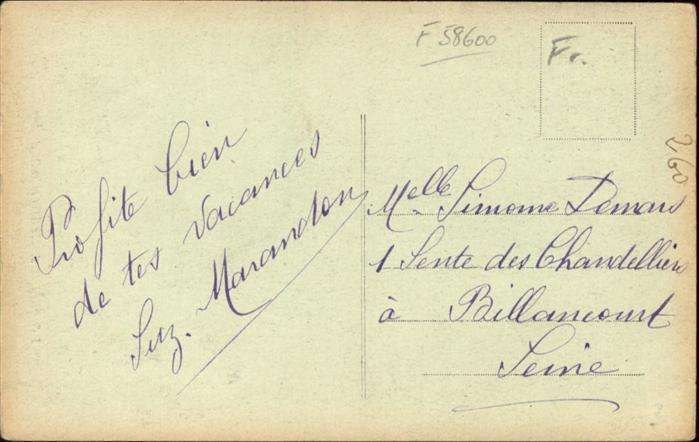 F 58600
Fr.
260
Profite bien
de tes vacances
Suz. Marandon
Melle Simone Demars
1 Sente des Chandelliers
à Billancourt
Seine